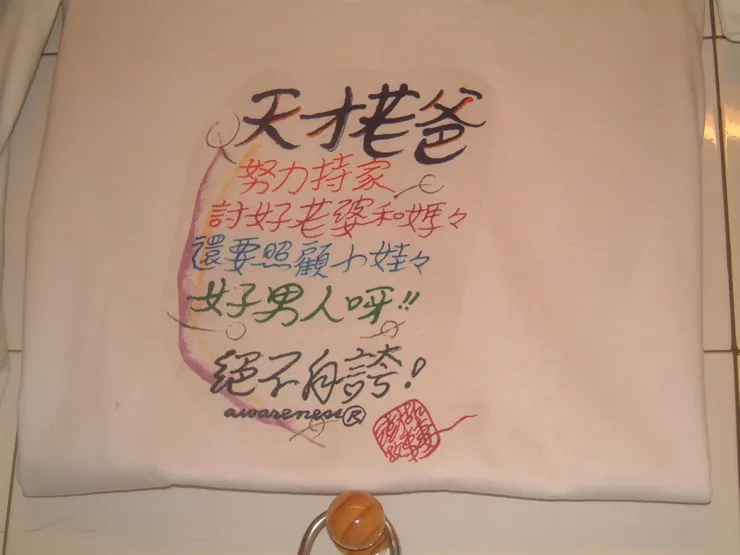 天才老爸
努力持家
討好老婆和媽々
還要照顧小娃々
好男人呀!!
絕不自誇!
awareness®